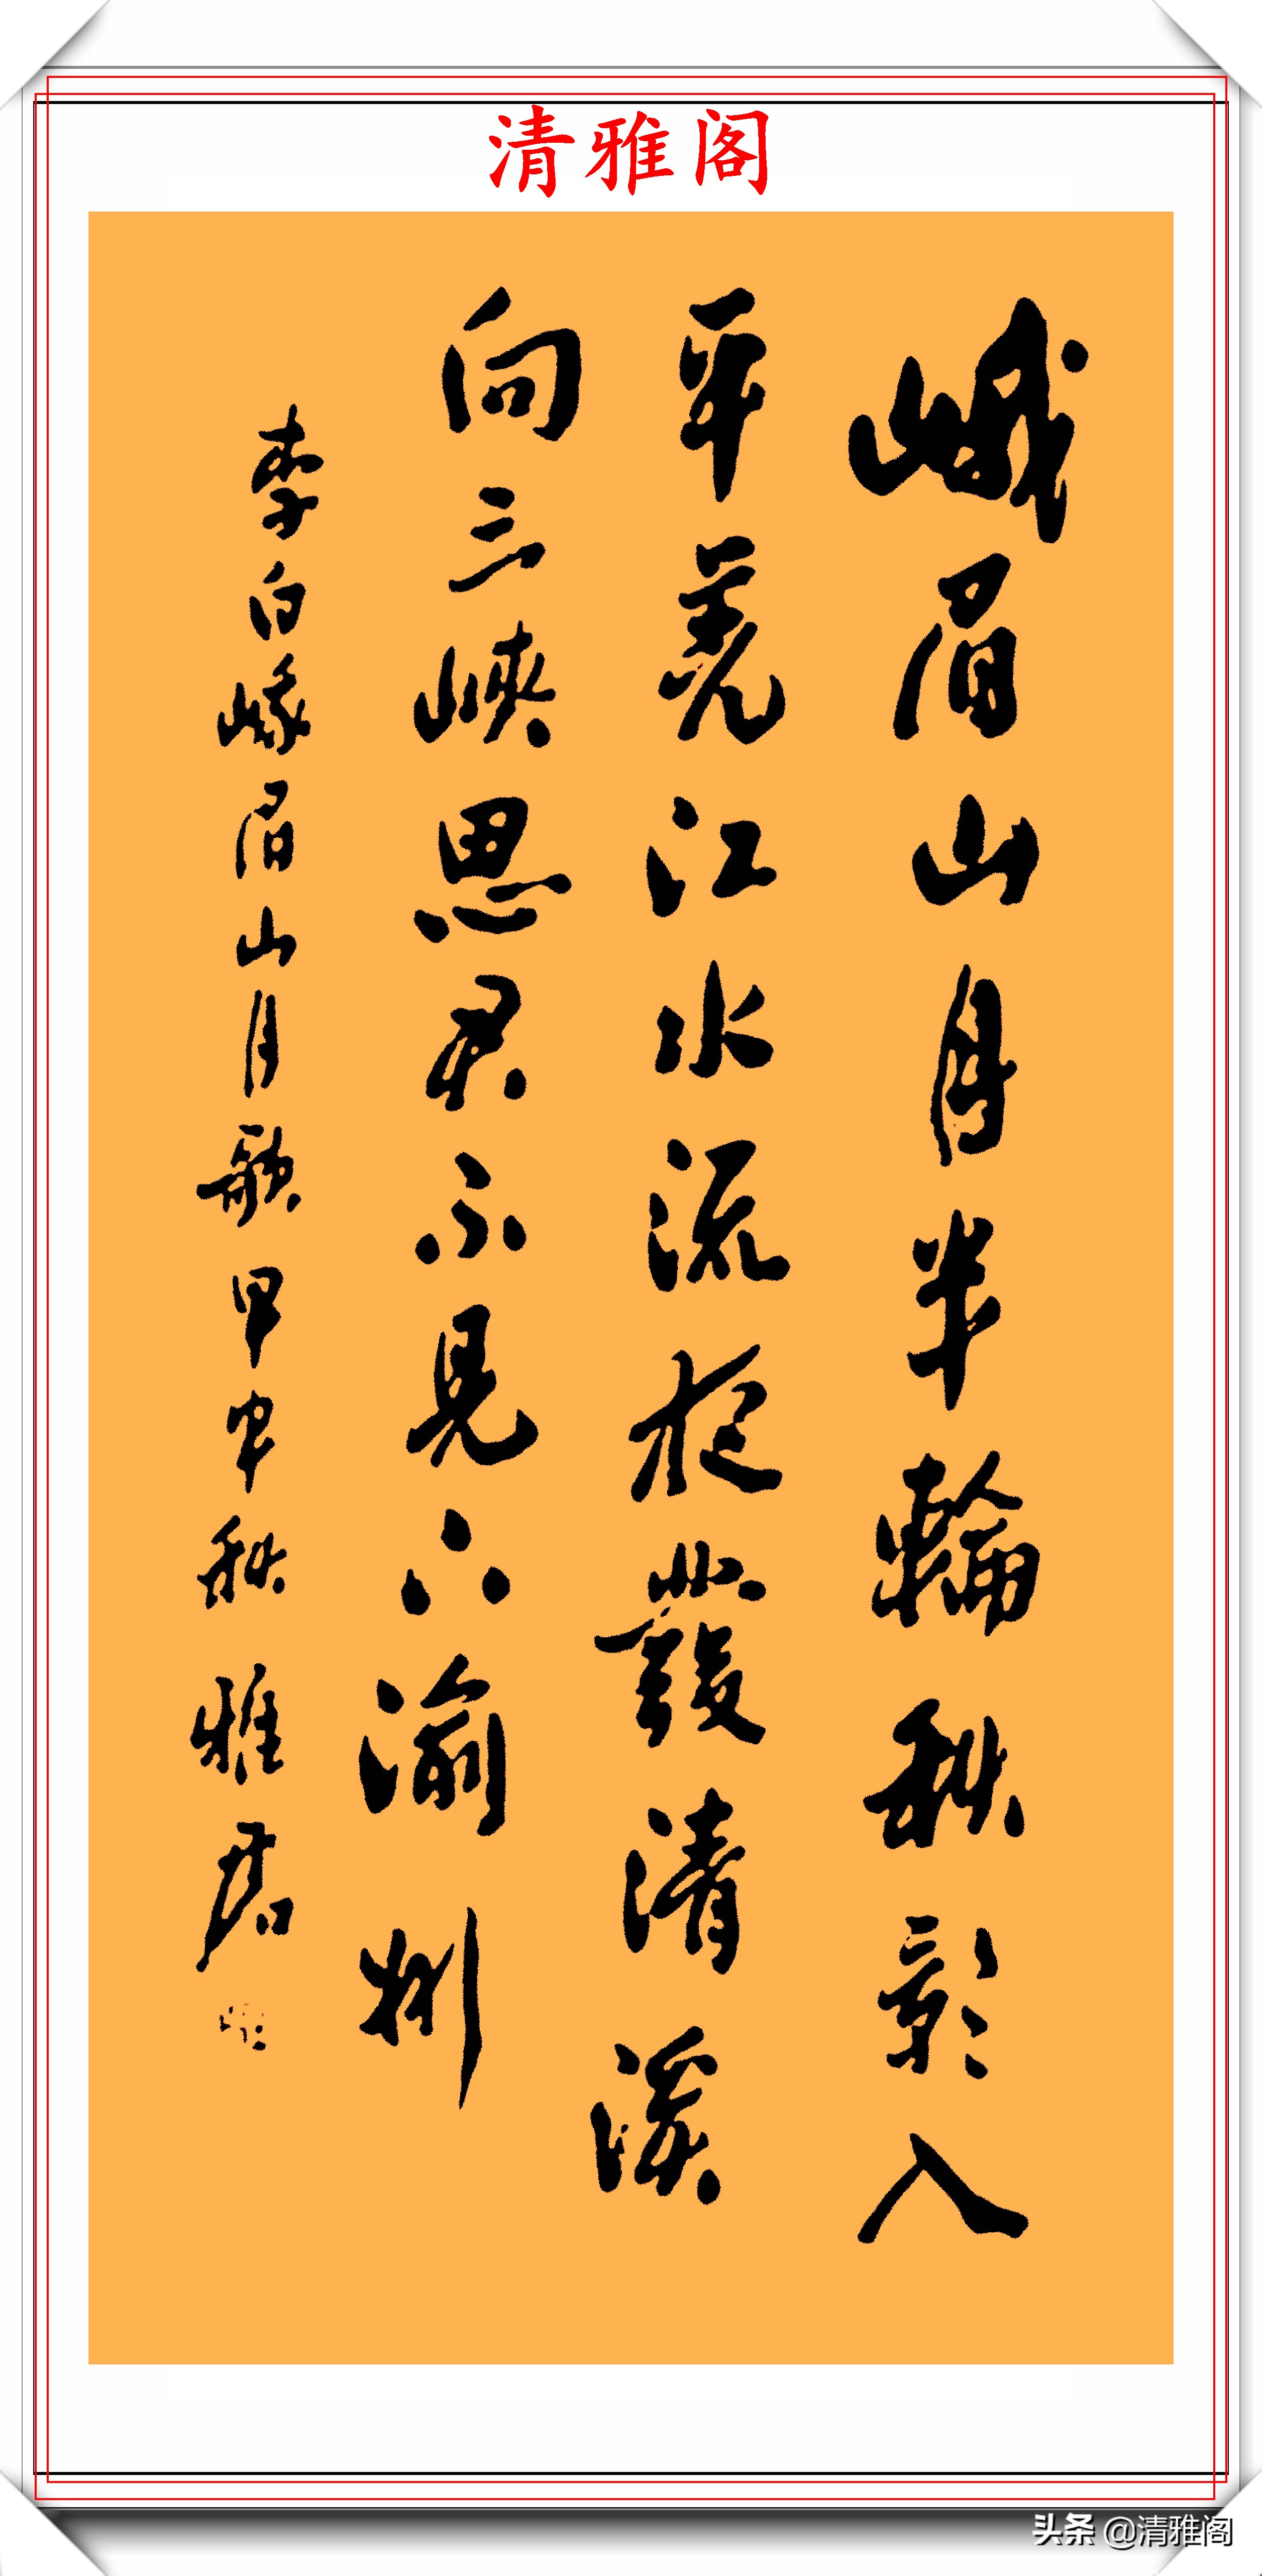 清雅阁
峨眉山月半輪秋影入
平羌江水流夜發清溪
向三峽思君不見下渝州
李白峨眉山月歌甲申秋 雅君
头条 @清雅阁